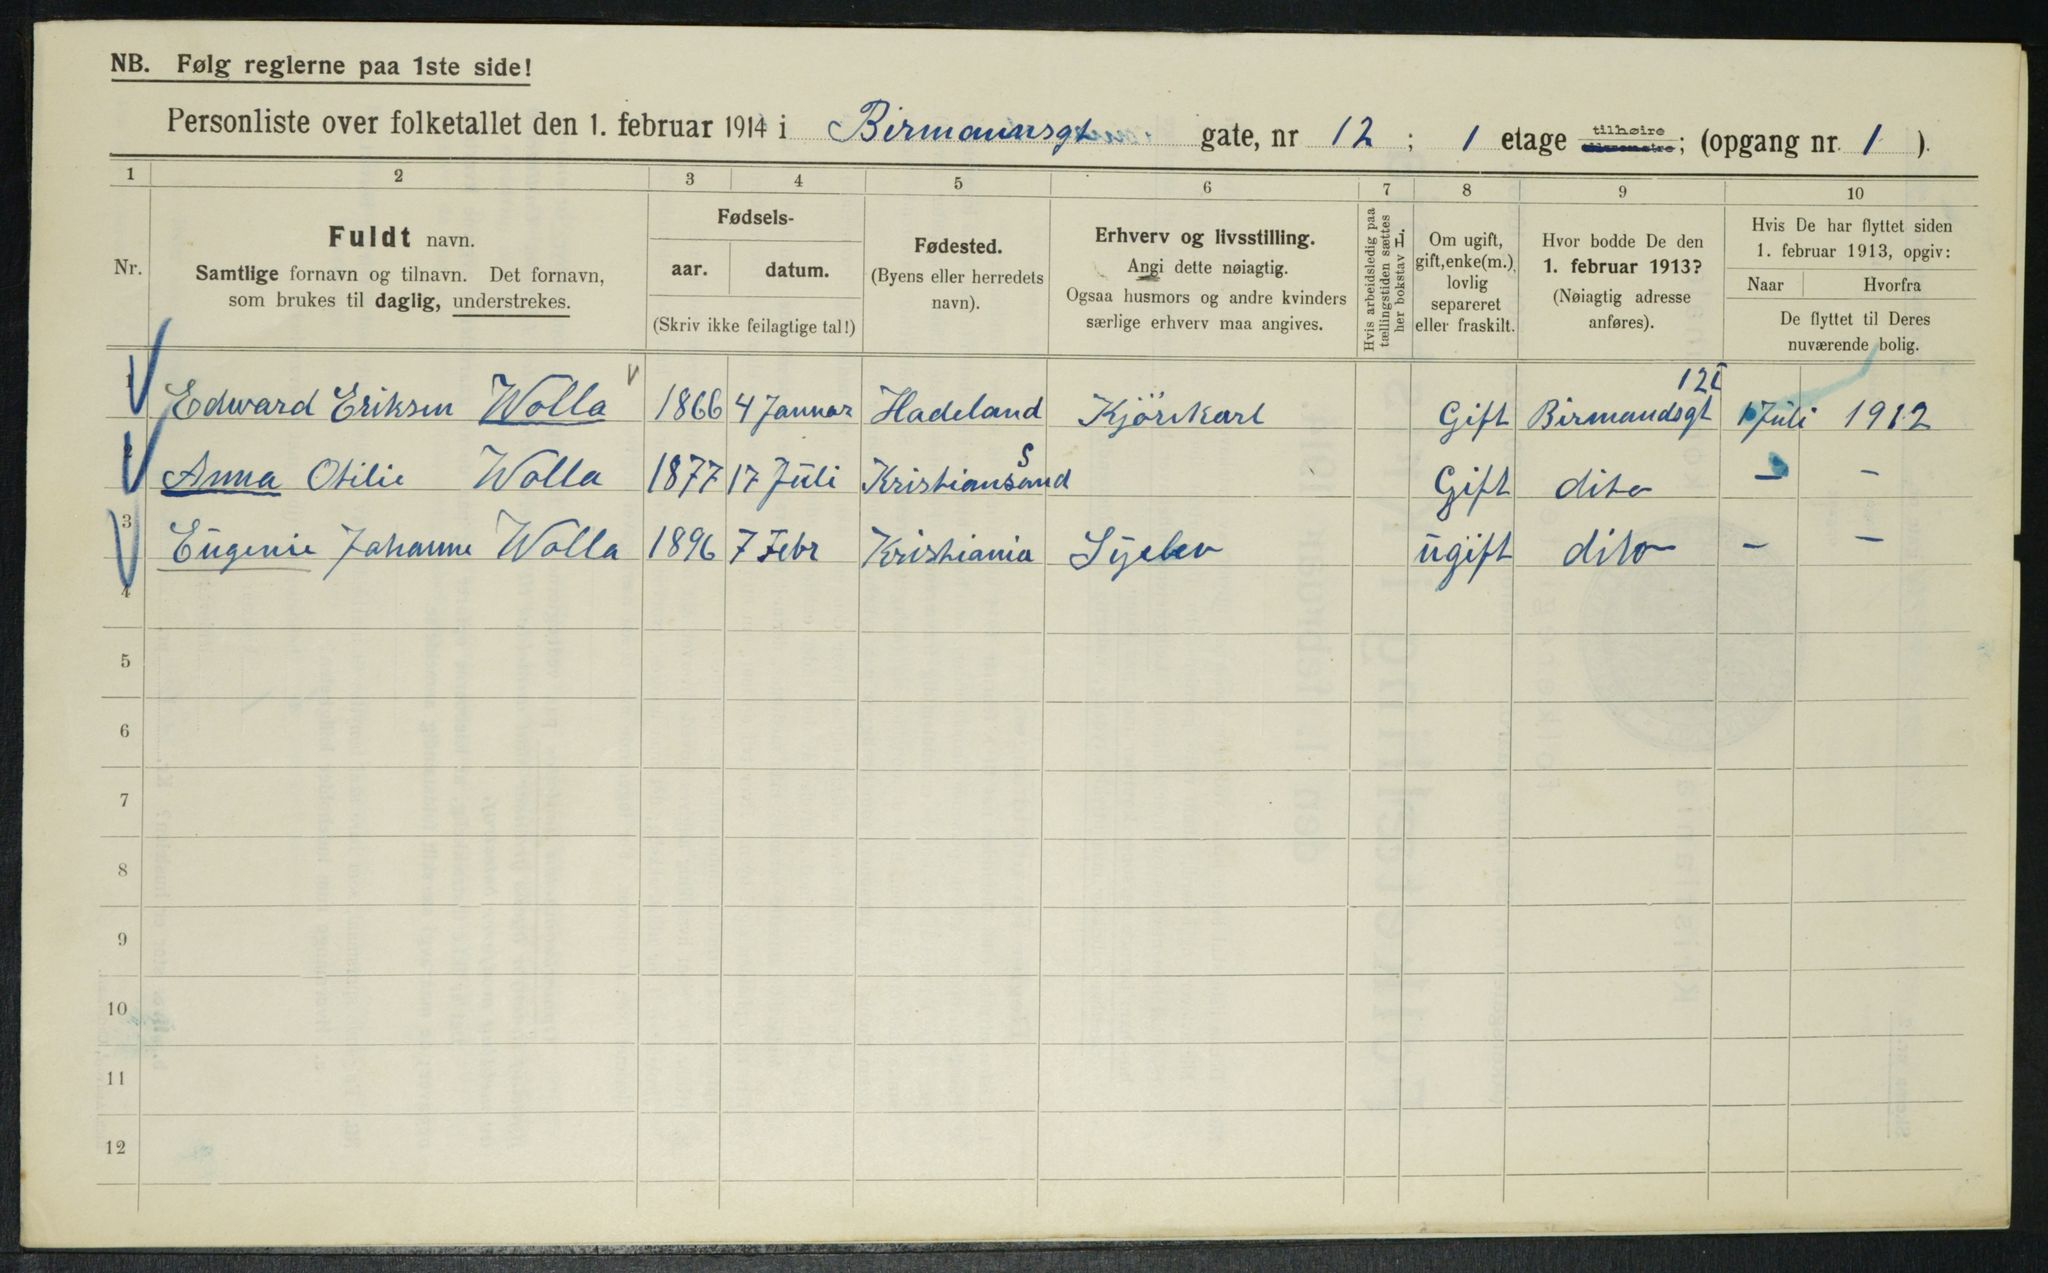 NB. Følg reglerne paa 1ste side!
Personliste over folketallet den 1. februar 1914 i Birmannsgt gate, nr 12 ; 1 etage tilhøire ; (opgang nr. 1 ).
1 2 3 4 5 6 7 8 9 10
Nr.
Fuldt navn.
Samtlige fornavn og tilnavn. Det fornavn,
som brukes til daglig, understrekes.
Fødsels-
aar. datum.
(Skriv ikke feilagtige tal!)
Fødested.
(Byens eller herredets
navn).
Erhverv og livsstilling.
Angi dette nøiagtig.
Ogsaa husmors og andre kvinders
særlige erhverv maa angives.
Hvis arbeidsledig paa
tællingstiden sættes
her bokstav H.
Om ugift,
gift, enke(m.),
lovlig
separeret
eller fraskilt.
Hvor bodde De den
1. februar 1913?
(Nøiagtig adresse
anføres).
Hvis De har flyttet siden
1. februar 1913, opgiv:
Naar Hvorfra
De flyttet til Deres
nuværende bolig.
1 Edward Eriksen Wolla 1866 4 Januar Hadeland Kjörekarl Gift Birmandsgt 12 I 1 Juli 1912
2 Anna Otilie Wolla 1877 17 Juli Kristianssand Gift dito - -
3 Eugenie Johanne Wolla 1896 7 Febr Kristiania Syelev ugift dito - -
4
5
6
7
8
9
10
11
12